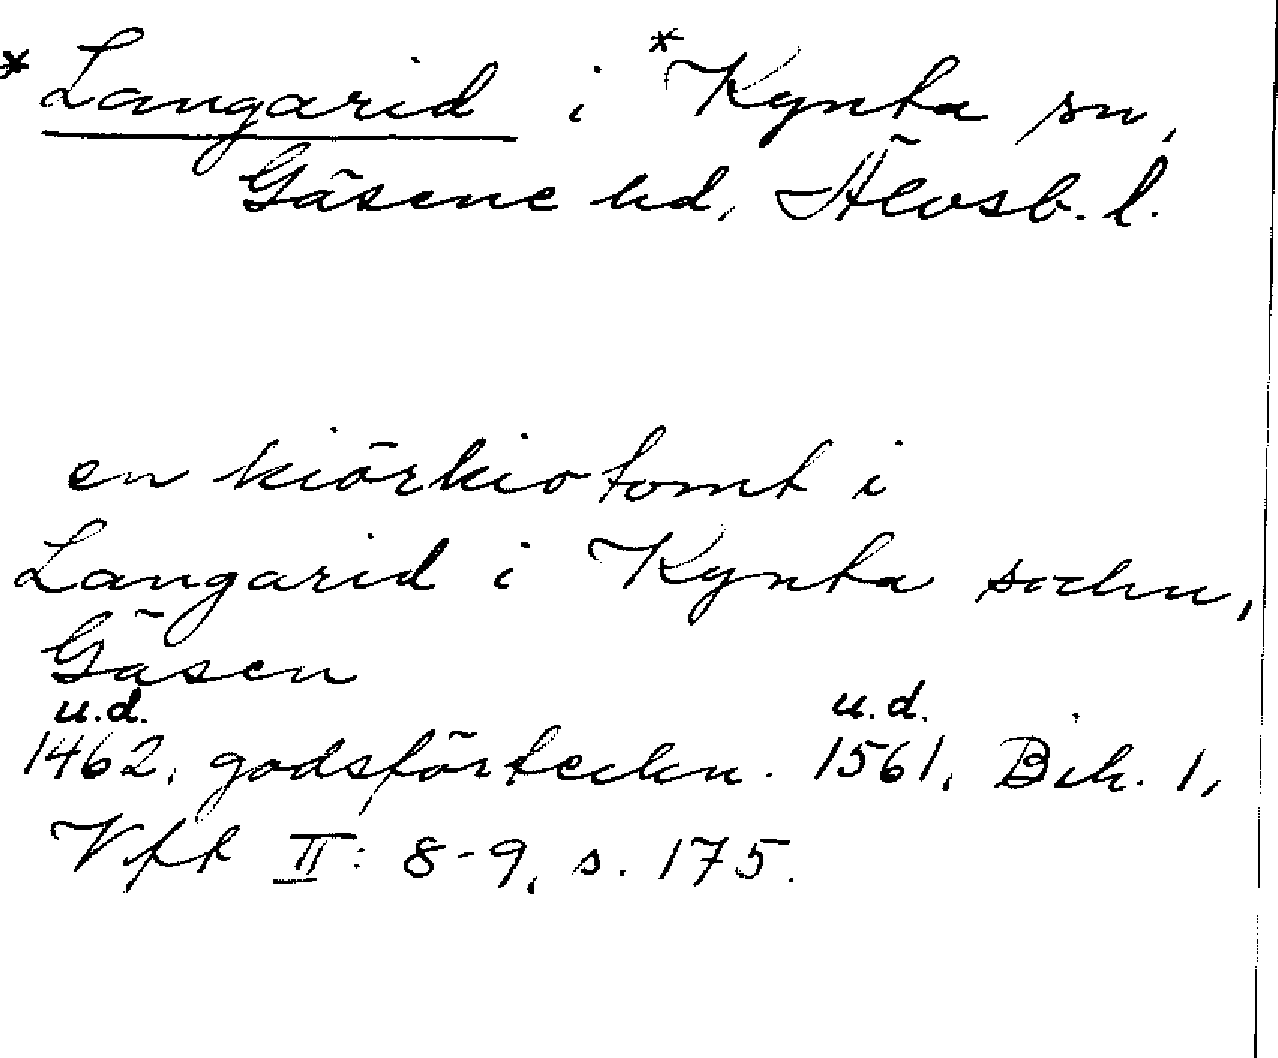 * Langarid i *Kynta sn,
Gäsene hd, Älvsb. l.
en kiörkiotomt i
Langarid i Kynta sochn,
Gäsen
u.d. u.d.
1462, godsförteckn. 1561, Bih. 1,
Vfft II: 8-9, s. 175.